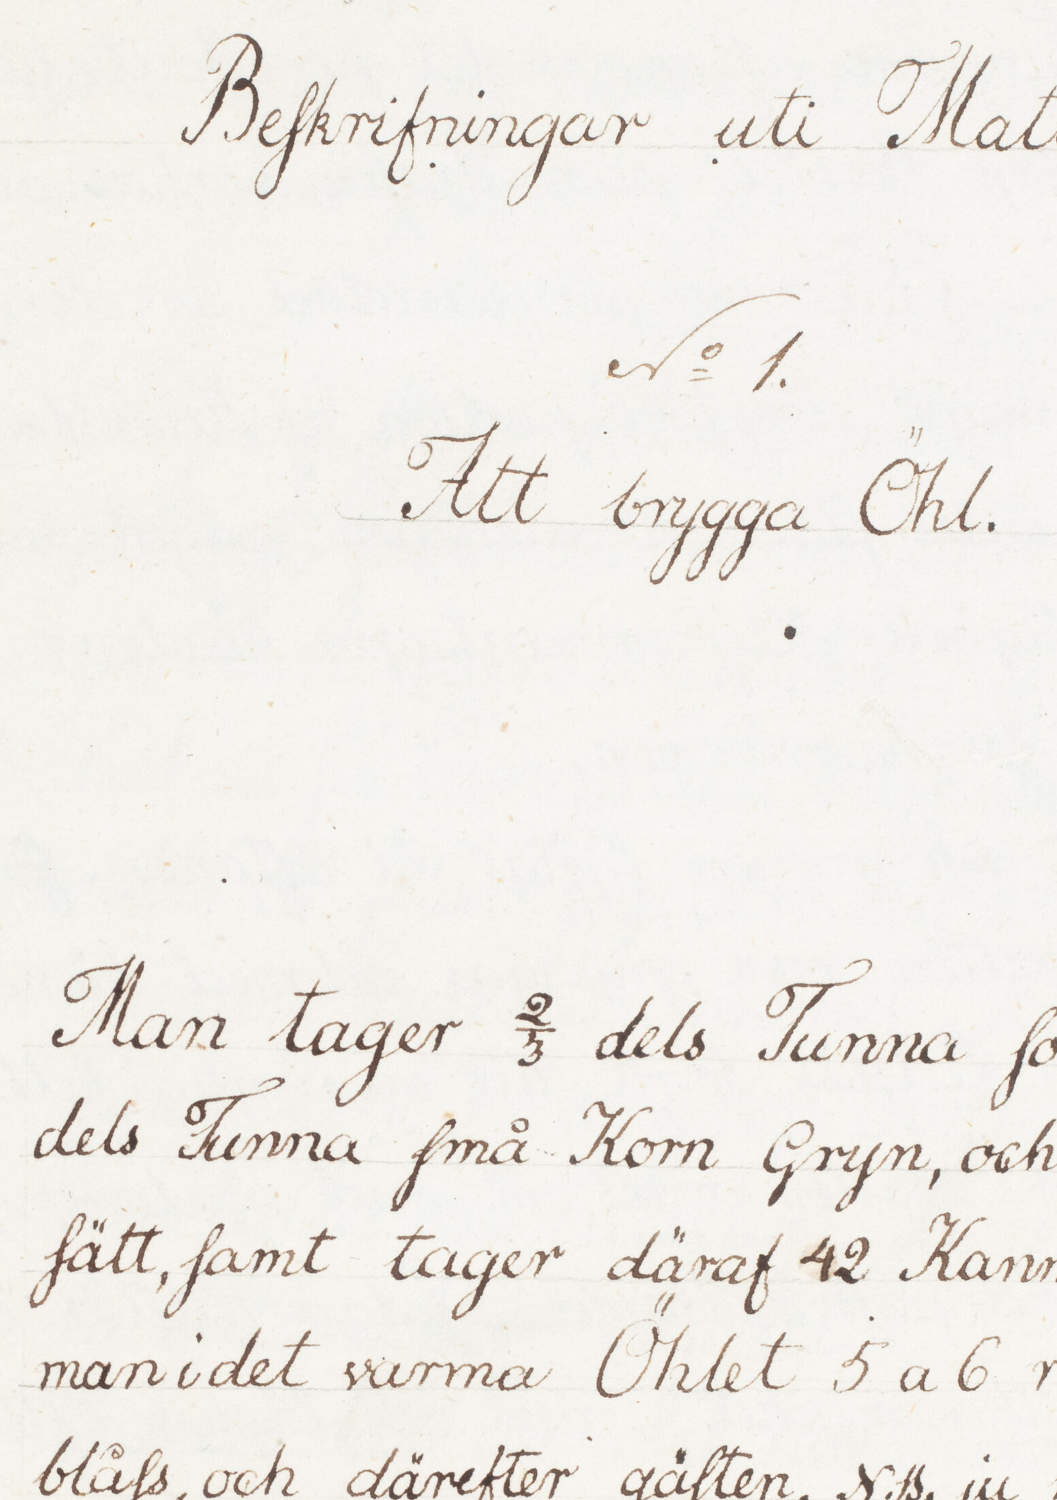 Beskrifningar uti Mat
No 1.
Att brygga Öhl.
Man tager 2/3 dels Tunna so
dels Tunna små Korn Gryn, och
sätt, samt tager däraf 42 Kann
man i det varma Öhlet 5 a 6 r
blåss, och därefter gästen. N.B. ju